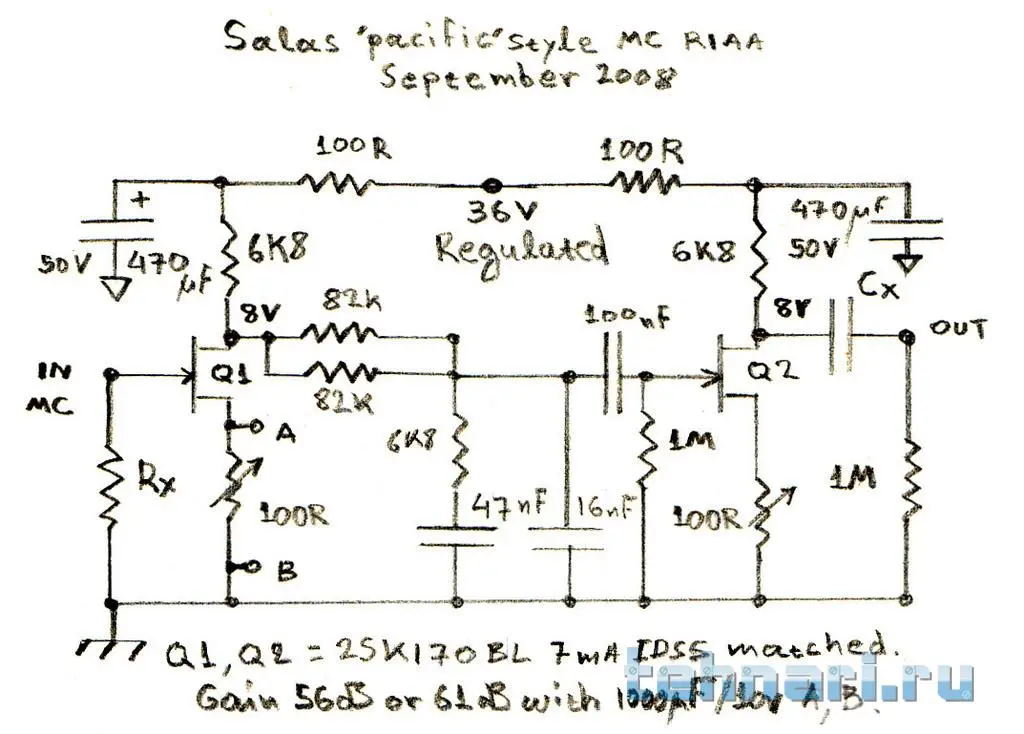 Salas "pacific" style MC RIAA
September 2008
100R
100R
36V
Regulated
+
50V
470
μF
6K8
6K8
470μF
50V
Cx
8V
82K
82K
100nF
8V
OUT
IN
MC
Q1
Q2
A
6K8
1M
1M
Rx
100R
47nF
16nF
100R
B
Q1, Q2 = 2SK170BL 7mA IDSS matched.
Gain 56dB or 61dB with 1000μF/10v A, B.
tehnari.ru